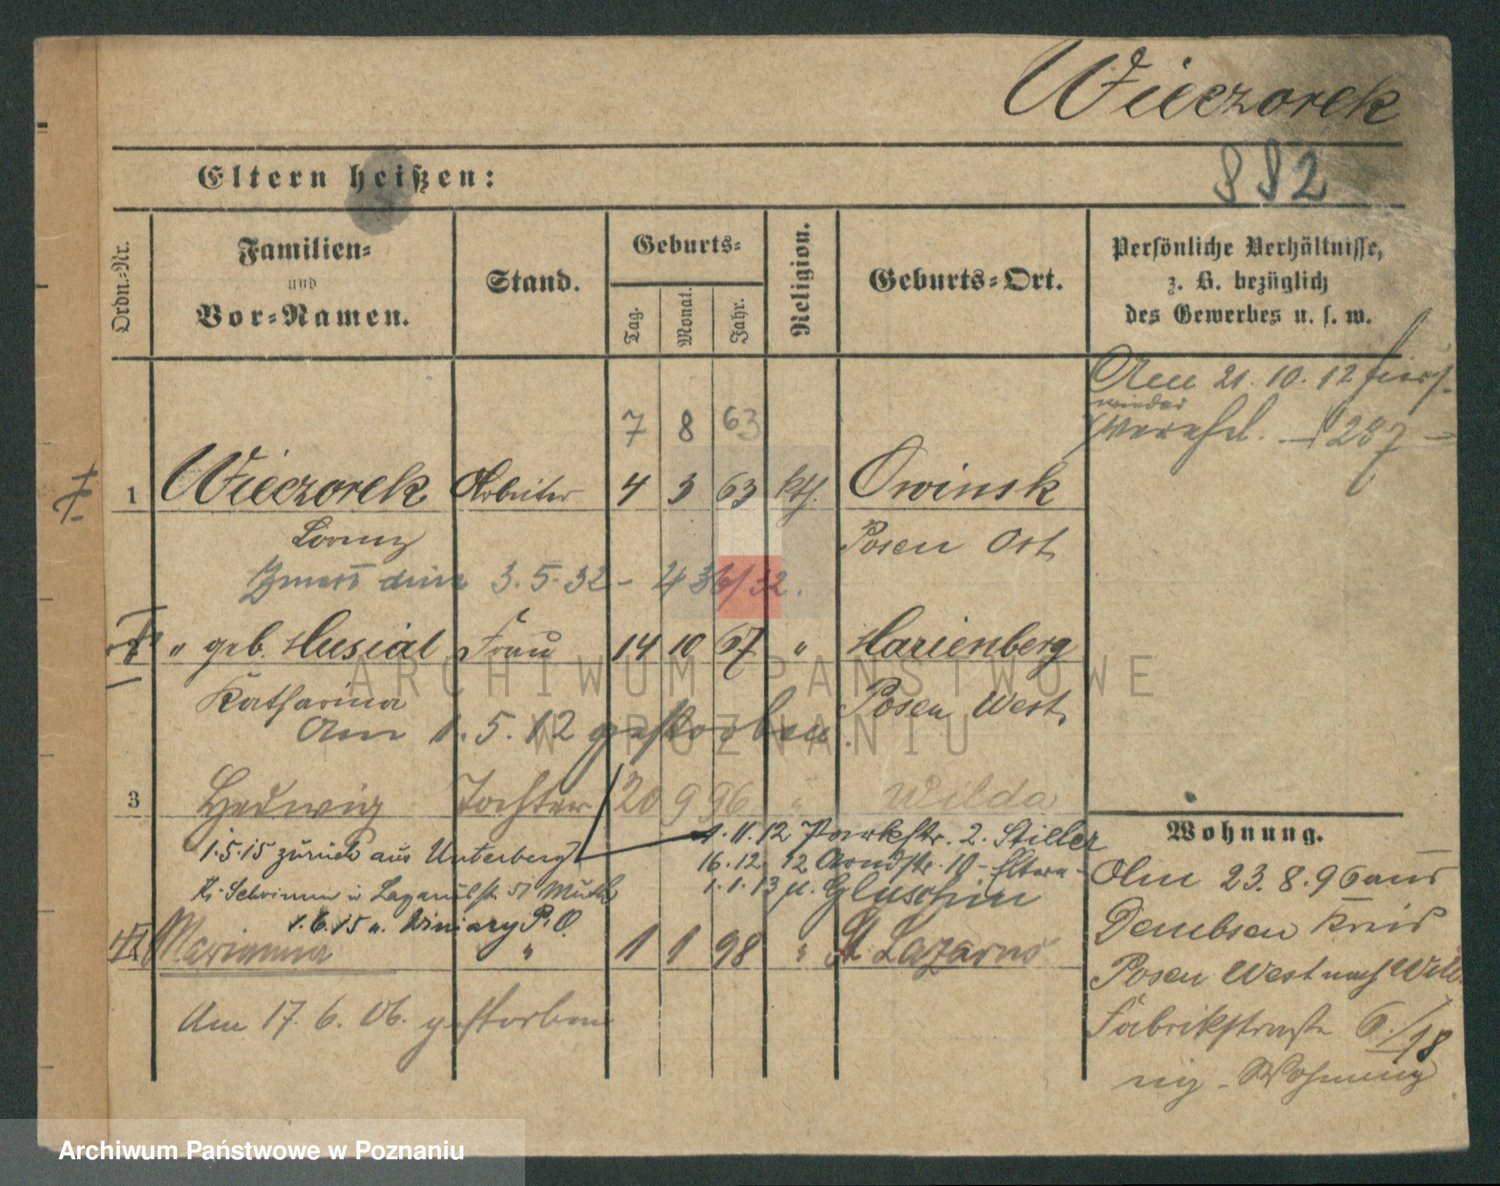 Wieczorek
882
Eltern heißen:
Ordn.-Nr.
Familien-
und
Vor-Namen.
Stand.
Geburts-
Tag.
Monat.
Jahr.
Religion.
Geburts-Ort.
Persönliche Verhältnisse,
z. B. bezüglich
des Gewerbes u. s. w.
Am 21. 10. 12
wieder
287
7 8 63
1 Wieczorek Arbeiter 4 3 63 kth. Owinsk
Lorenz Posen Ost
3.5.32
" geb. Musial Frau 14 10 67 " Marienberg
Katharina Posen West
Am 1.5.12 gestorben.
3 Hedwig Tochter 20 9 96 " Wilda
1.5.15 zurück aus Unterberg
1.11.12 Parkstr. 2. Stiller
16.12.12 Arndtstr. 10 - Eltern
1.1.13 n. Gluschin
1.6.15 n. Winiary P. O.
4 Marianna " 1 1 98 " St Lazarus
Am 17. 6. 06. gestorben
Wohnung.
Am 23. 8. 96 aus
Dembsen Kreis
Posen West nach Wilda
Fabrikstraße 6/18
Wohnung
ARCHIWUM PAŃSTWOWE
W POZNANIU
Archiwum Państwowe w Poznaniu